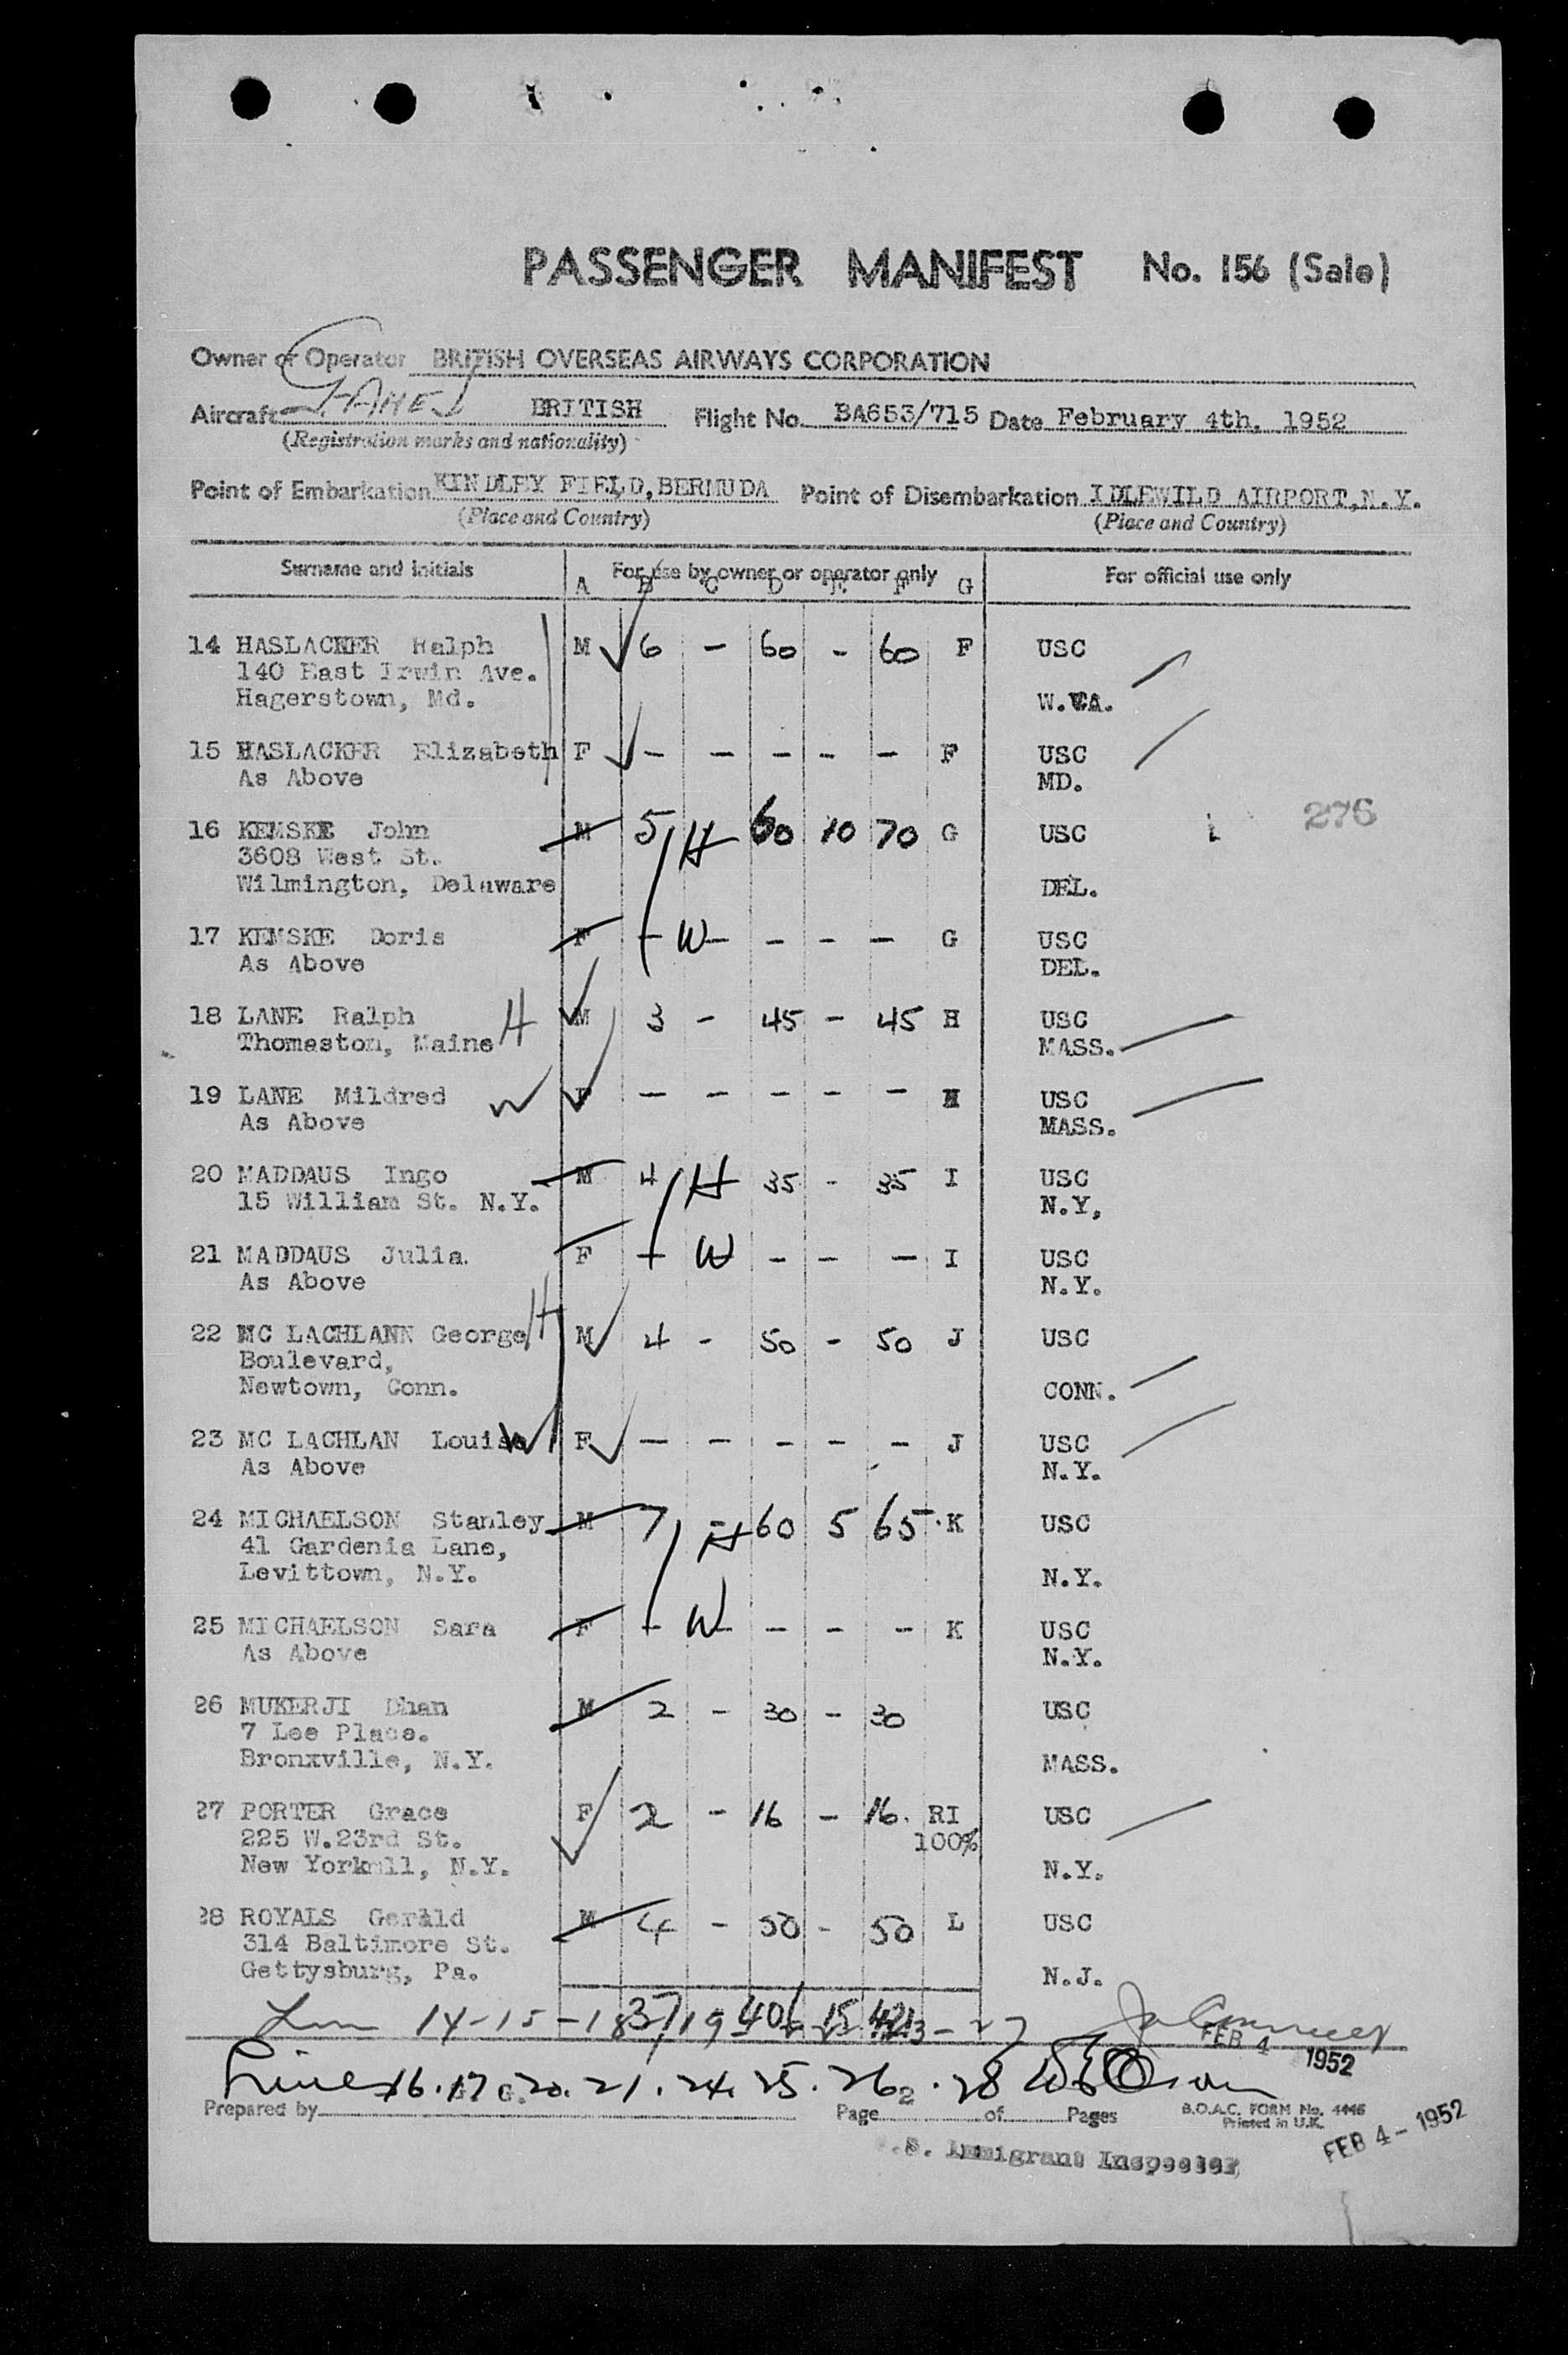 PASSENGER MANIFEST No. 156 (Sale)
Owner or Operator BRITISH OVERSEAS AIRWAYS CORPORATION
Aircraft BRITISH Flight No. BA653/715 Date February 4th, 1952
(Registration marks and nationality)
Point of Embarkation KINDLEY FIELD, BERMUDA Point of Disembarkation IDLEWILD AIRPORT, N.Y.
(Place and Country) (Place and Country)
Surname and initials For use by owner or operator only For official use only
A B C D E F G
14 HASLACKER Ralph M 6 - 60 - 60 F USC
140 East Irwin Ave.
Hagerstown, Md. W.VA.
15 HASLACKER Elizabeth F - - - - - F USC
As Above MD.
276
16 KEMSKE John M 5 H 60 10 70 G USC
3608 West St.
Wilmington, Delaware DEL.
17 KEMSKE Doris F - W - - - - G USC
As Above DEL.
18 LANE Ralph H M 3 - 45 - 45 H USC
Thomaston, Maine MASS.
19 LANE Mildred W F - - - - - H USC
As Above MASS.
20 MADDAUS Ingo M 4 H 35 - 35 I USC
15 William St. N.Y. N.Y,
21 MADDAUS Julia. F - W - - - I USC
As Above N.Y.
22 MC LACHLANN George H M 4 - 50 - 50 J USC
Boulevard,
Newtown, Conn. CONN.
23 MC LACHLAN Louise W F - - - - - J USC
As Above N.Y.
24 MICHAELSON Stanley M 7 - H 60 5 65 K USC
41 Gardenia Lane,
Levittown, N.Y. N.Y.
25 MICHAELSON Sara F - W - - - - K USC
As Above N.Y.
26 MUKERJI Dhan M 2 - 30 - 30 USC
7 Lee Place.
Bronxville, N.Y. MASS.
27 PORTER Grace F 2 - 16 - 16. RI USC
225 W.23rd St. 100%
New York 11, N.Y. N.Y.
28 ROYALS Gerald M 4 - 50 - 50 L USC
314 Baltimore St.
Gettysburg, Pa. N.J.
14-15-18 37 19 406 15 421 - 27
FEB 4 1952
Lines 16. 17 20. 21. 24. 25. 26. 28
Prepared by G. Page 2 of Pages B.O.A.C. FORM No. 4446
Printed in U.K.
FEB 4 - 1952
.S. Immigrant Inspector